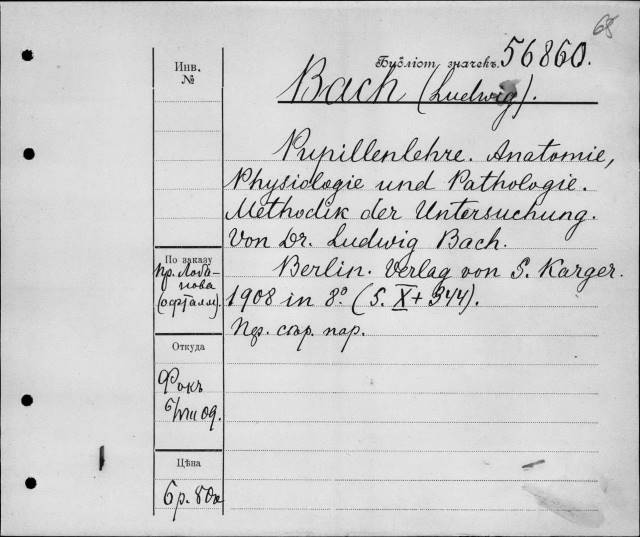 68
Библіот. значекъ. 56860.
Инв.
№
Bach (Ludwig).
Pupillenlehre. Anatomie,
Physiologie und Pathologie.
Methodik der Untersuchung.
Von Dr. Ludwig Bach.
Berlin. Verlag von S. Karger.
1908 in 8º (S. X + 344).
По заказу
пр. Лоба-
нова
(офталм).
Откуда
Фокъ
6/VIII 09.
Цѣна
6 р. 80к